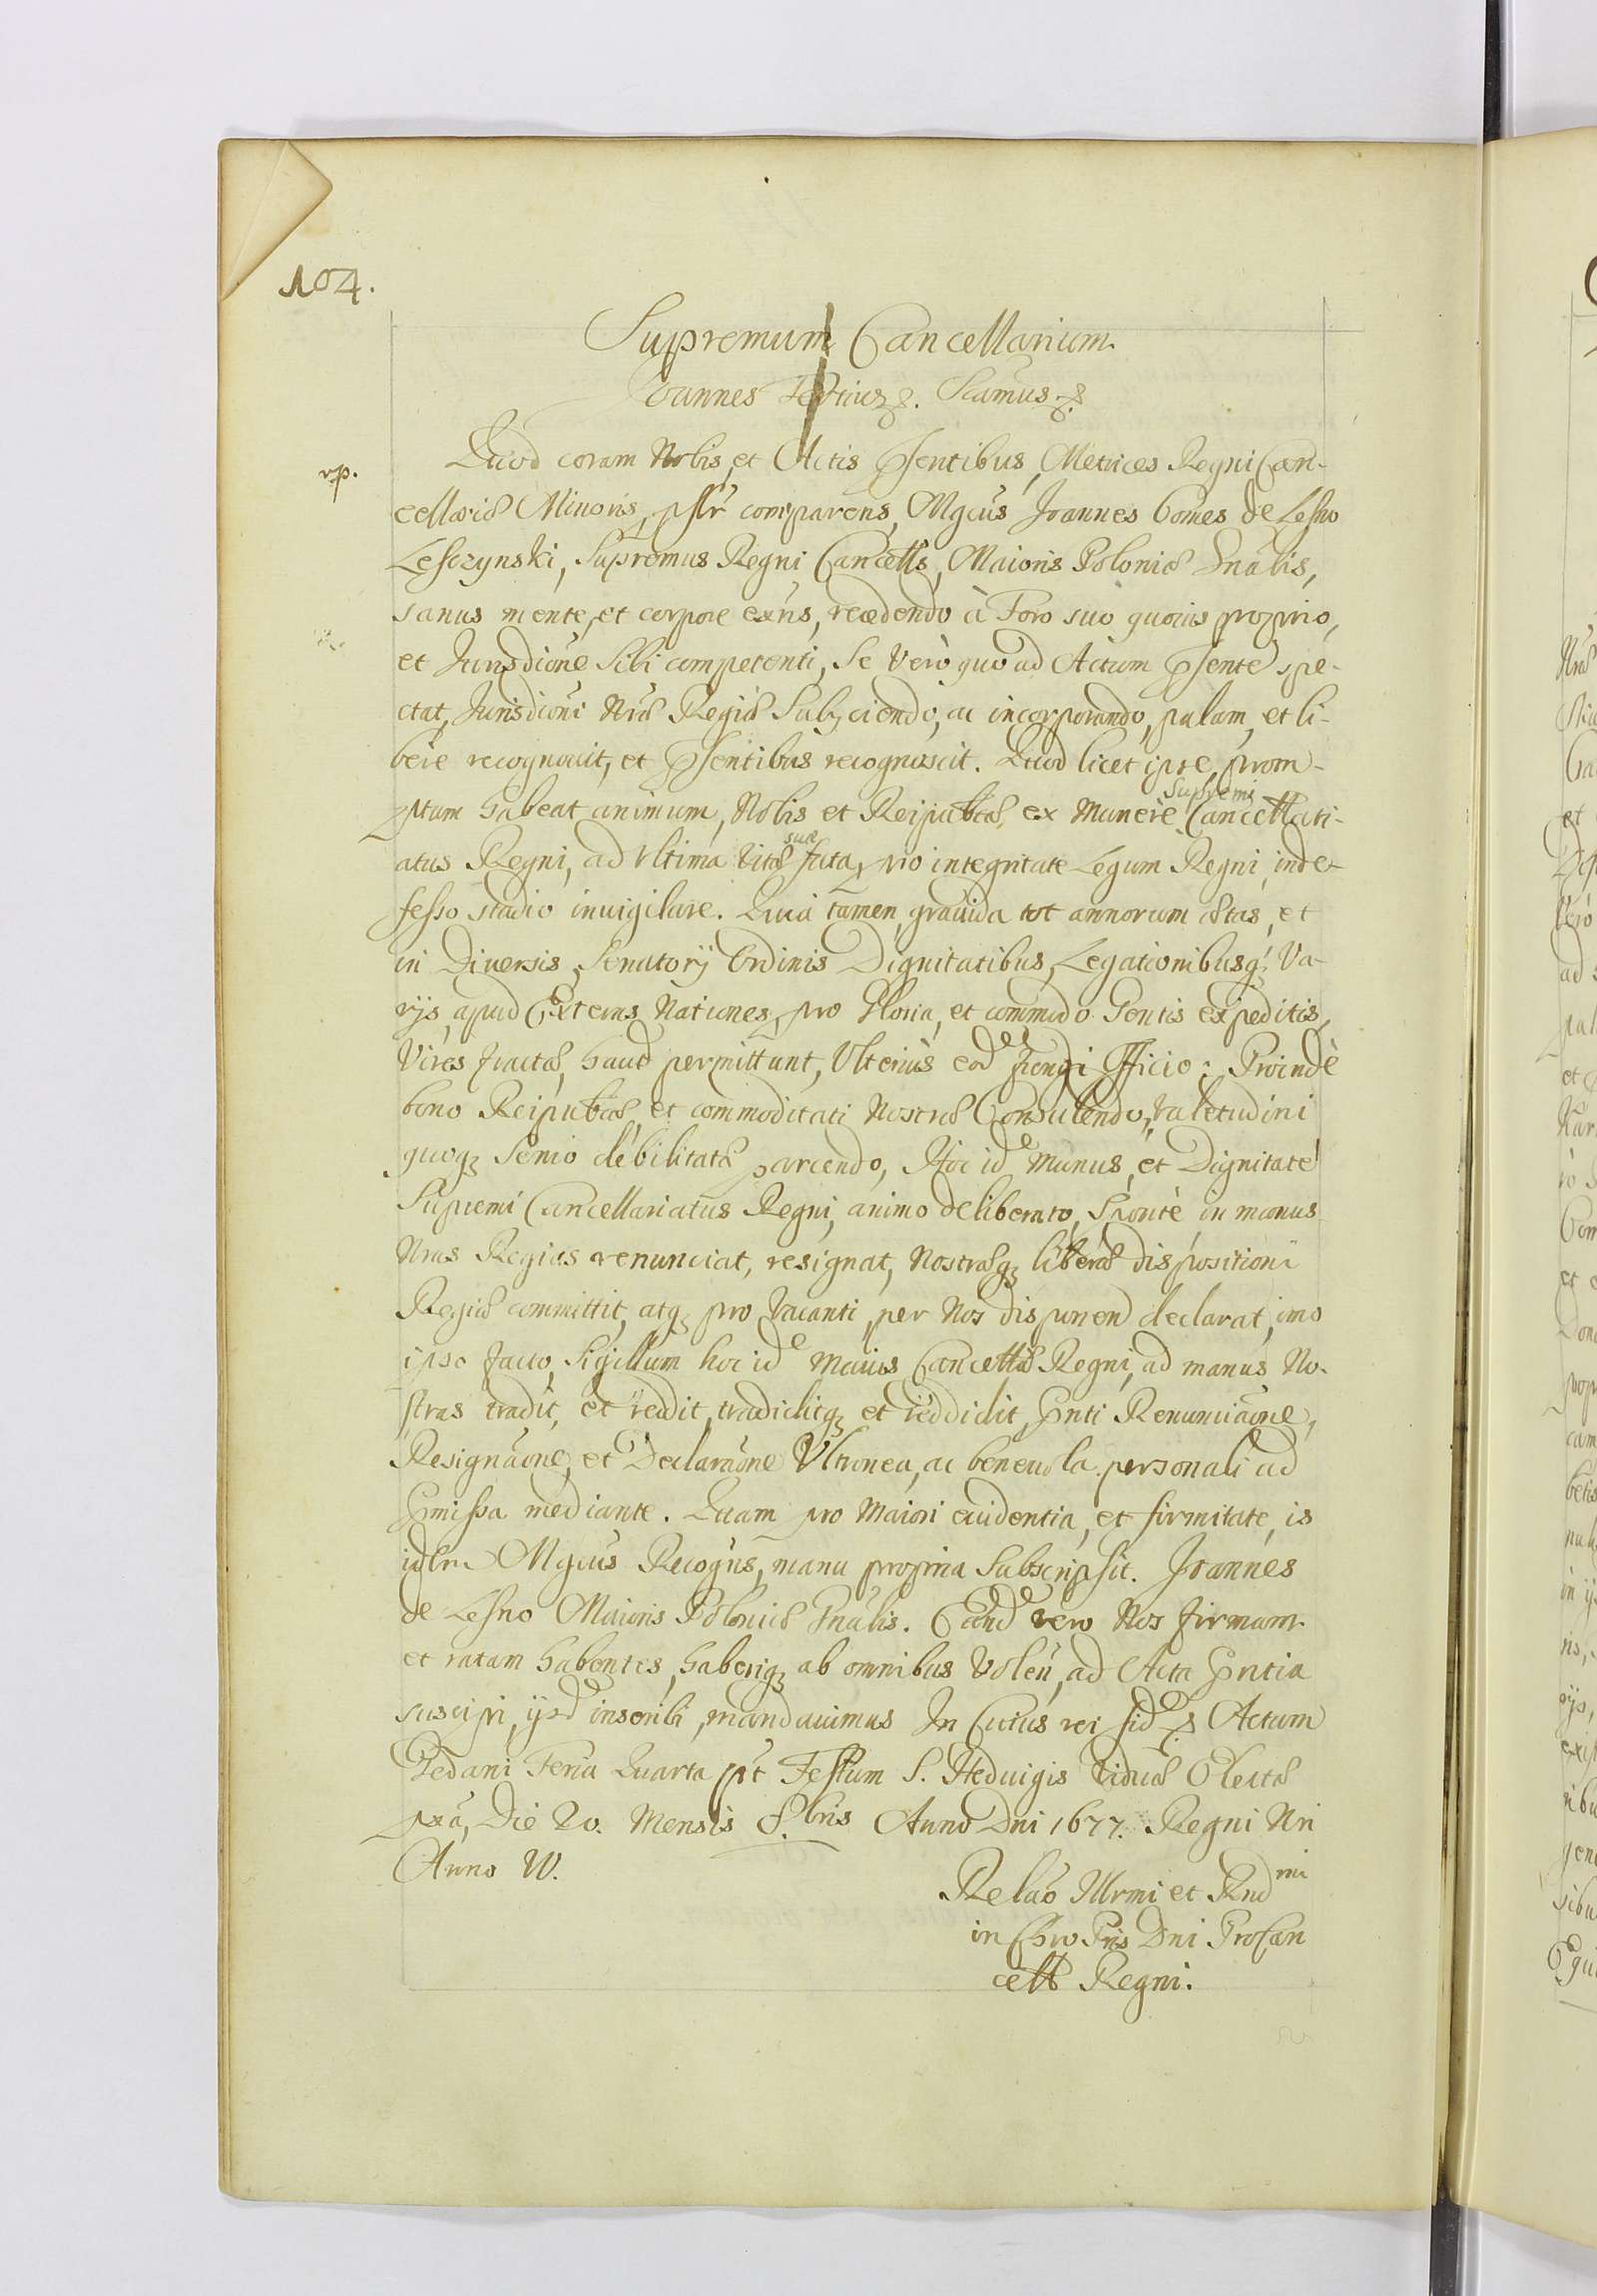 104.
Supremum Cancellarium.
Joannes Tertius etc. Scamus etc.
rp.
Quod coram Nobis, et Actis Pſentibus, Metrices Regni Can-
cellariæ Minoris, pſlr comparens, Mgcus Joannes Comes de Leſno
Leſczynski, Supremus Regni Cancells, Maioris Poloniæ Gnalis,
sanus mente, et corpore exñs, recedendo à Foro suo quovis proprio,
et Jurisdione Sibi competenti, Se Verò quo ad Actum Pſente spe-
ctat, Jurisdioni Nræ Regiæ Subyciendo, ac incorporando, palam, et li-
bere recognouit, et Pſentibus recognoscit. Quod licet ipse, prom-
ptum habeat animum, Nobis et Reipublicæ, ex Munere Supremi Cancellari-
atus Regni, ad Vltima Vitæ suæ fata, pro integritate Legum Regni, inde-
feſso studio inuigilare. Quia tamen, grauida tot annorum ætas, et
in Diuersis, Senatorij Ordinis Dignitatibus, Legationibusq; Va-
rijs, apud Externs Nationes, pro Gloria, et commodo Gentis expeditis,
Vires fractæ, haud permittunt, Vlterius eod fungi Officio: Proindè
bono Reipublicæ, et commoditati Nostræ Consulendo, Valetudini
quoq; Senio debilitatæ parcendo, Hoc id Munus, et Dignitatē
Supremi Cancellariatus Regni, animo deliberato, Spontè in manus
Nras Regias renunciat, resignat, Nostræq; liberæ dispositioni
Regiæ committit, atq; pro Vacanti, per Nos disponend declarat, imo
ipso facto, Sigillum hoc id Maius Cancellæ Regni, ad manus No-
stras tradit, et reddit, tradiditq; et reddidit, Pnti Renunciaone,
Resignaone, et Declaraone Vltronea, ac beneuola personali ad
Pmiſsa mediante. Quam pro Maiori euidentia, et firmitate, is
idem Mgcus Recogns, manu propria Subscripsit. Joannes
de Leſno Maioris Poloniæ Gnalis. Eand vero Nos firmam
et ratam habentes, haberiq; ab omnibus Volen, ad Acta Pntia
suscipi, ijsd inscribi, mandauimus In Cuius rei fid etc Actum
Gedani Feria Quarta pst Feſtum S. Hedvigis Viduæ Electæ
pxa, Die 20. Mensis 8.bris Anno Dni 1677. Regni Nri
Anno IV.
Relao Illrmi et Rndmi
in Chro Pris Dni ProCan
cell Regni.